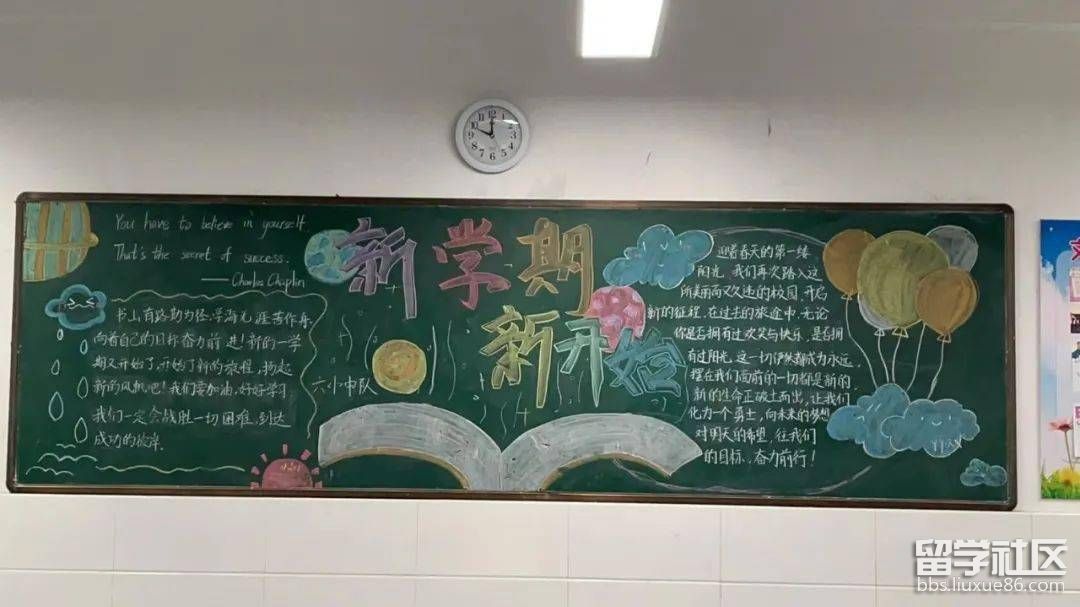 You have to believe in yourself.
That's the secret of success.
——Charles Chaplin
书山有路勤为径,学海无涯苦作舟,
向着自己的目标奋力前进!新的一学
期又开始了,开始了新的旅程,扬起
新的风帆吧!我们要加油,好好学习
我们一定会战胜一切困难,到达
成功的彼岸.
新学期
新开始
六小中队
迎着春天的第一缕
阳光,我们再次踏入这
所美丽而又久违的校园,开启
新的征程,在过去的旅途中,无论
你是否拥有过欢笑与快乐,是否拥
有过阳光,这一切依然都成为永远,
摆在我们面前的一切都是新的,
新的生命正破土而出,让我们
化为一个勇士,向未来的梦想
对明天的希望,往我们
的目标,奋力前行!
留学社区
bbs.liuxue86.com